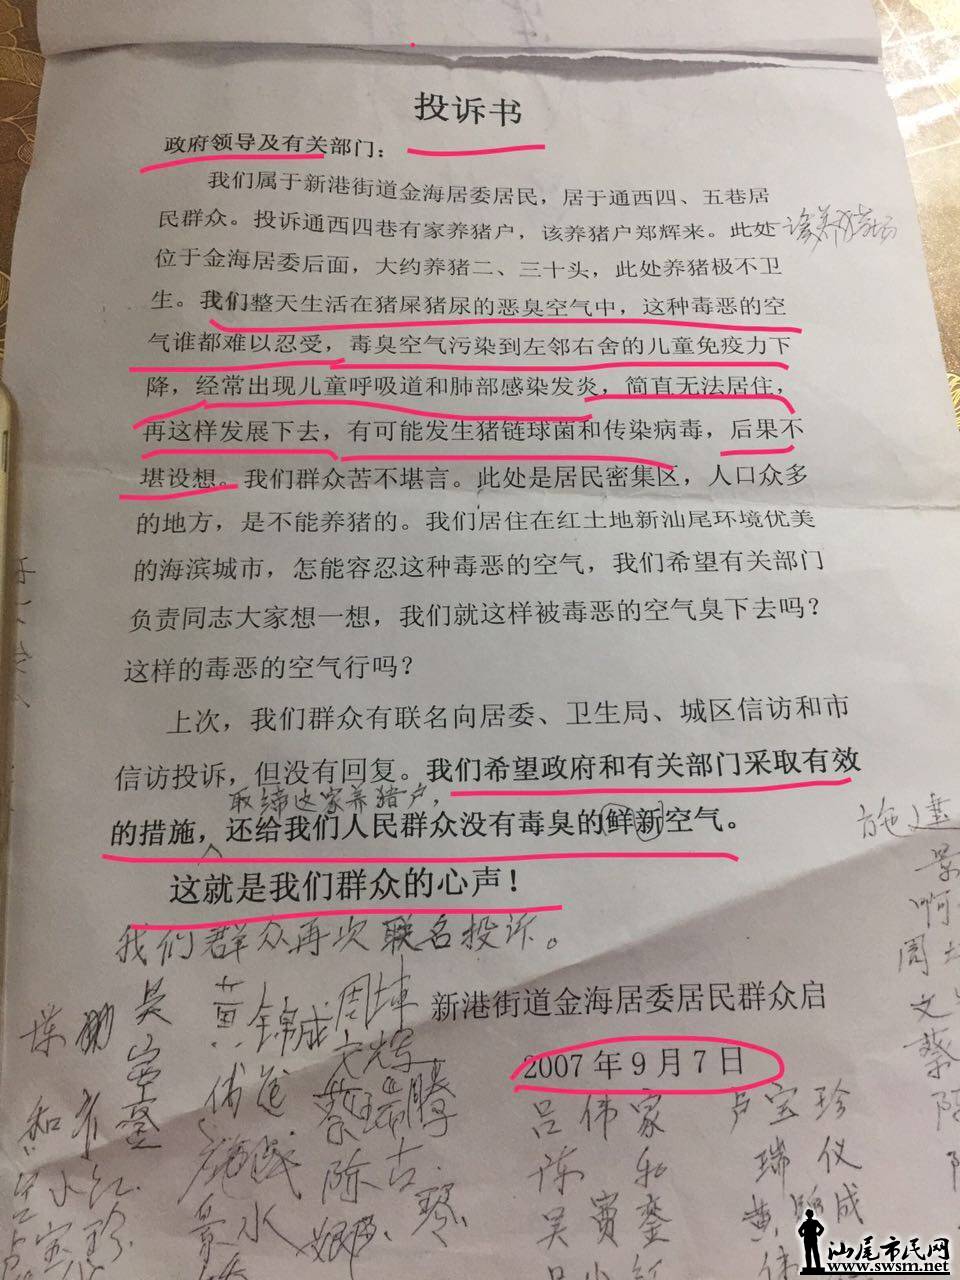 投诉书
政府领导及有关部门：
我们属于新港街道金海居委居民，居于通西四、五巷居
民群众。投诉通西四巷有家养猪户，该养猪户郑辉来。此处
位于金海居委后面，大约养猪二、三十头，此处养猪极不卫
生。我们整天生活在猪屎猪尿的恶臭空气中，这种毒恶的空
气谁都难以忍受，毒臭空气污染到左邻右舍的儿童免疫力下
降，经常出现儿童呼吸道和肺部感染发炎，简直无法居住，
再这样发展下去，有可能发生猪链球菌和传染病毒，后果不
堪设想。我们群众苦不堪言。此处是居民密集区，人口众多
的地方，是不能养猪的。我们居住在红土地新汕尾环境优美
的海滨城市，怎能容忍这种毒恶的空气，我们希望有关部门
负责同志大家想一想，我们就这样被毒恶的空气臭下去吗？
这样的毒恶的空气行吗？
上次，我们群众有联名向居委、卫生局、城区信访和市
信访投诉，但没有回复。我们希望政府和有关部门采取有效
取缔这家养猪户，
的措施，还给我们人民群众没有毒臭的鲜新空气。
这就是我们群众的心声！
我们群众再次联名投诉。
新港街道金海居委居民群众启
2007年9月7日
黄锦成
周坤
蔡瑞腾
陈古
吕伟家
卢宝珍
陈
瑞仪
吴
黄锦成
施建
周
文
蔡
陈
汕尾市民网
www.swsm.net